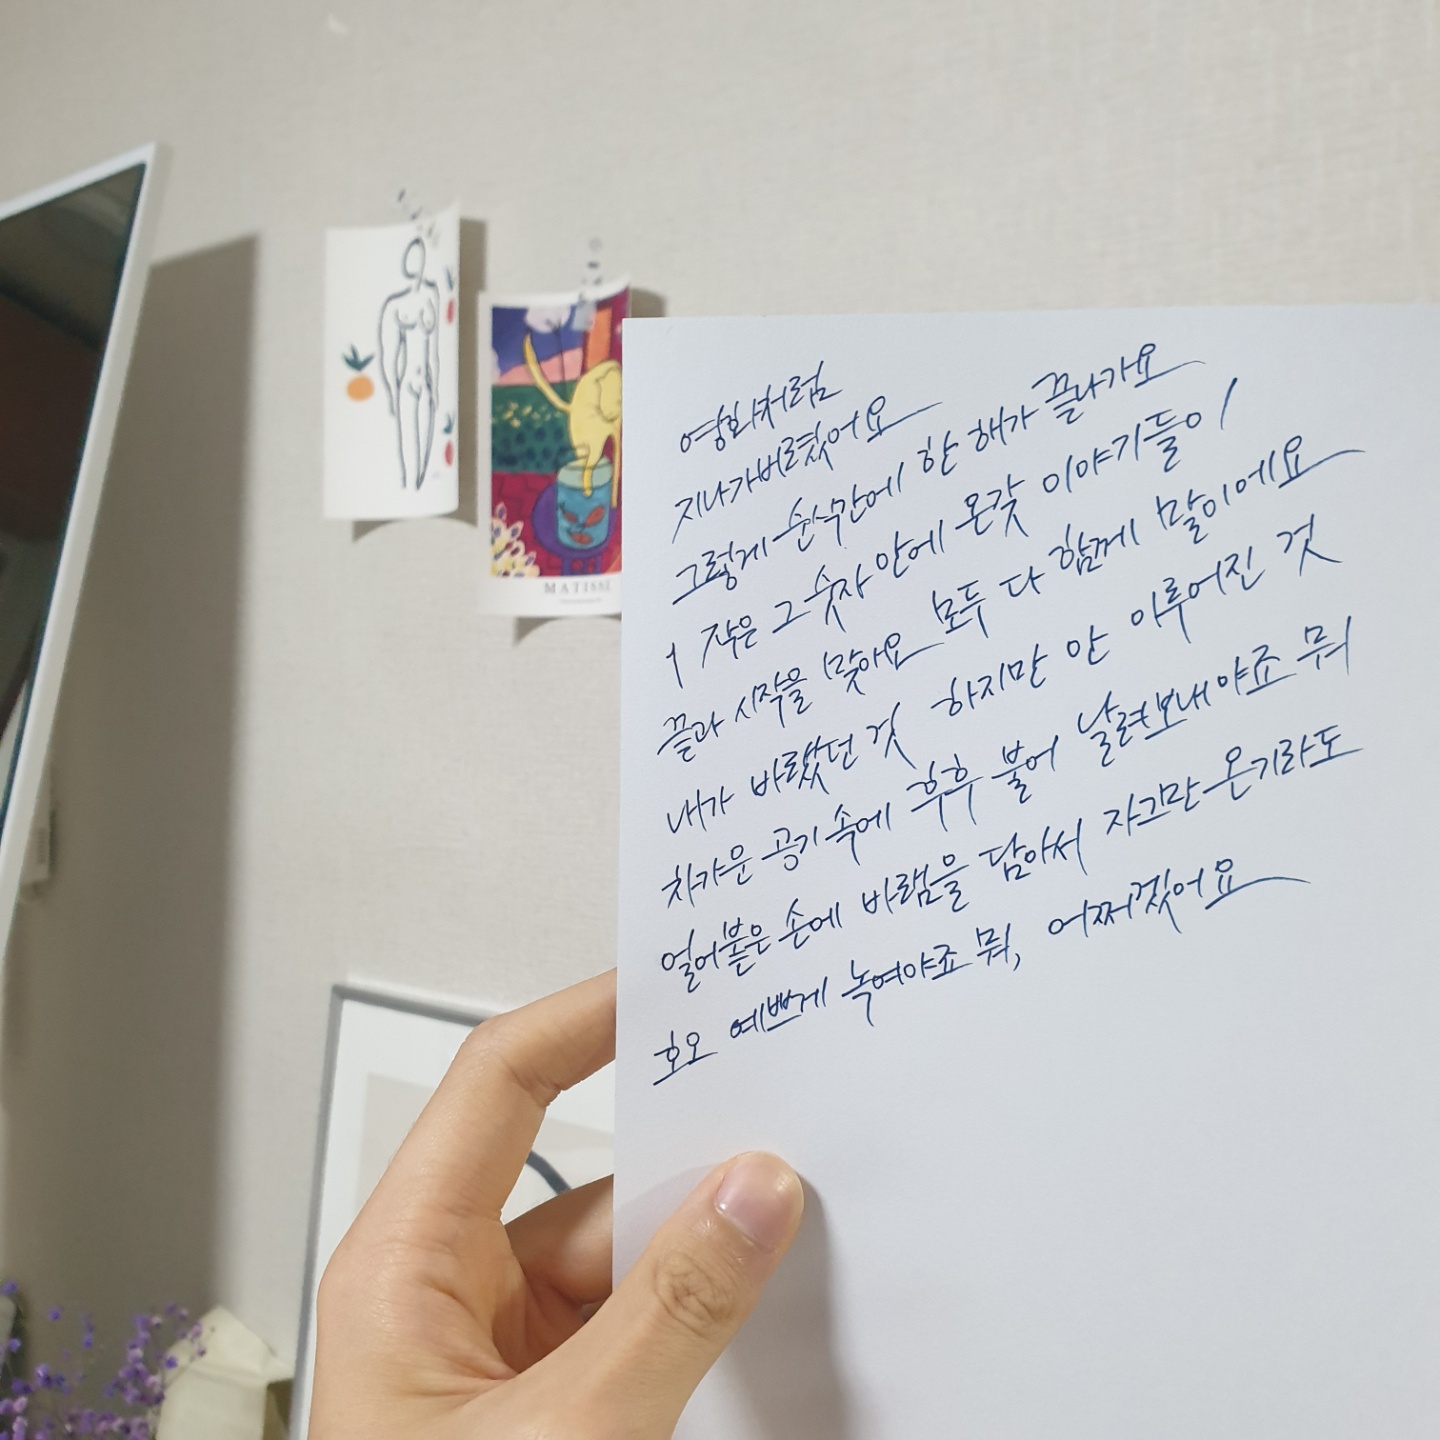 MATISSE
영화처럼
지나가버렸어요
그렇게 순식간에 한 해가 끝나가요
1 작은 그 숫자 안에 온갖 이야기들이
끝과 시작을 맞아요 모두 다 함께 말이에요
내가 바랐던 것 하지만 안 이루어진 것
차가운 공기 속에 후후 불어 날려보내야죠 뭐
얼어붙은 손에 바램을 담아서 자그만 온기라도
호오 예쁘게 녹여야죠 뭐, 어쩌겠어요